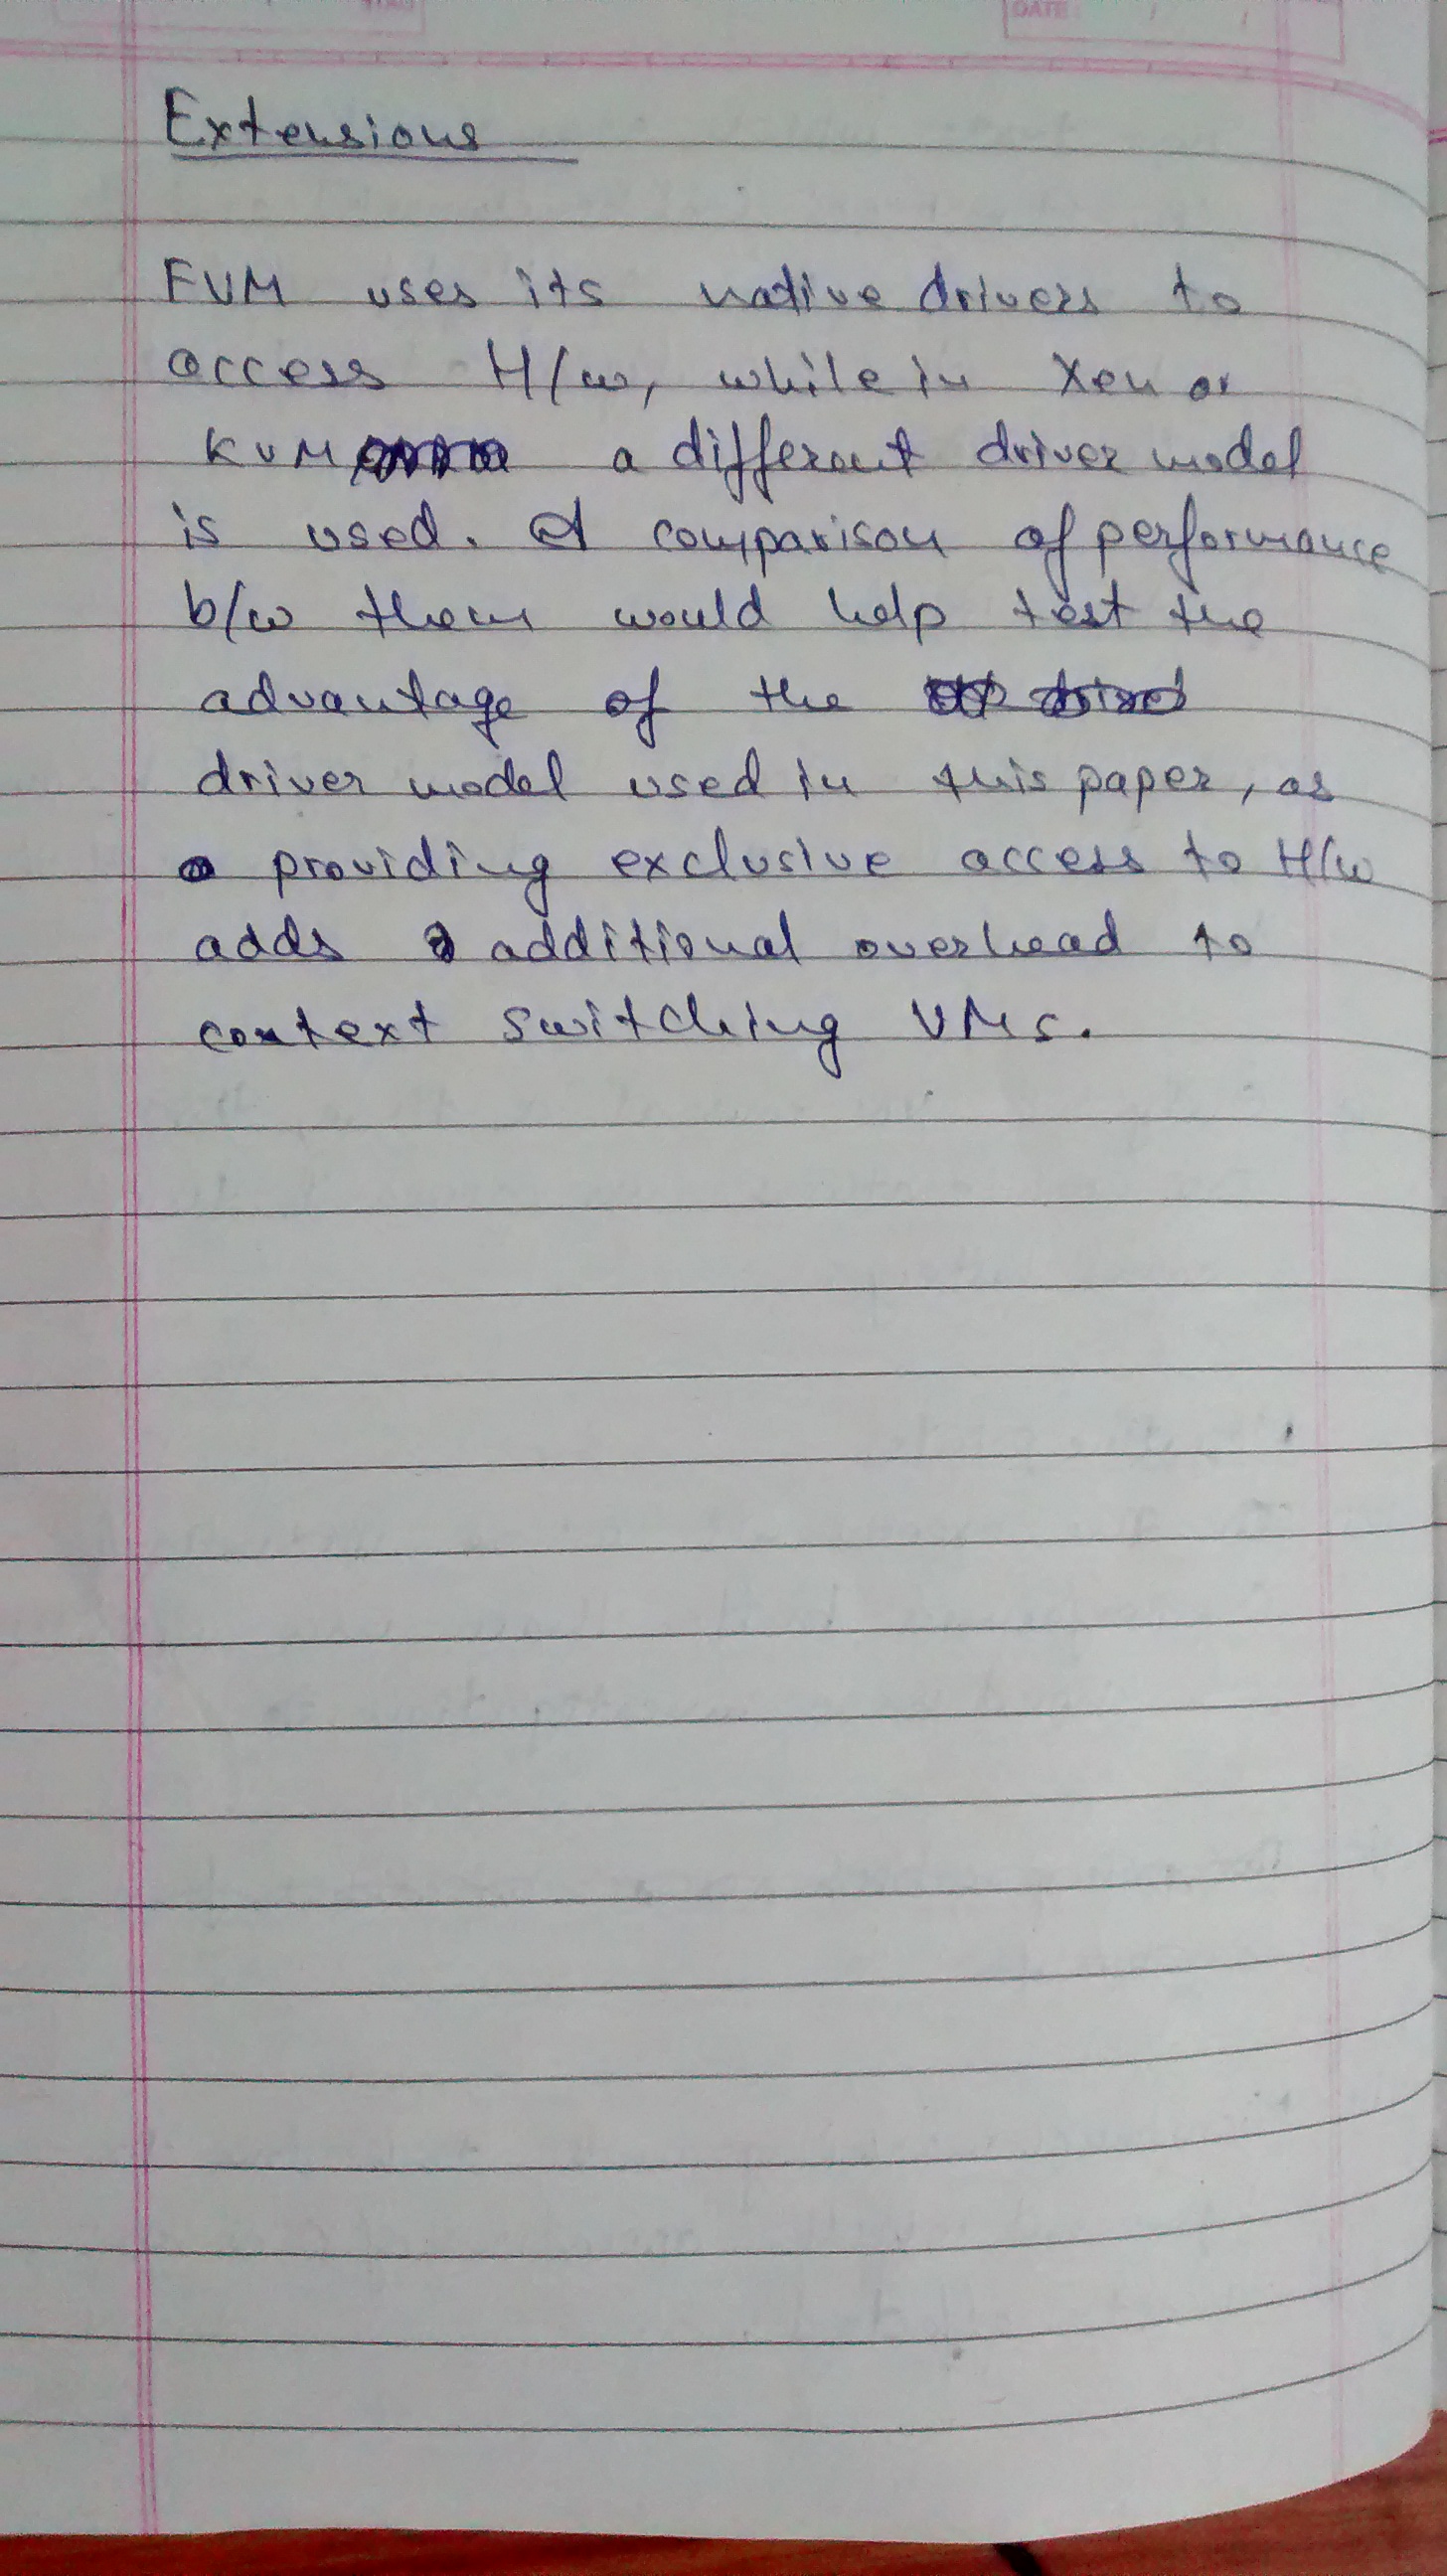 DATE
Extensions
FVM uses its native drivers to
access H/w, while in Xen or
KVM a different driver model
is used. A comparison of performance
b/w them would help test the
advantage of the
driver model used in this paper, as
providing exclusive access to H/w
adds additional overhead to
context switching VMs.